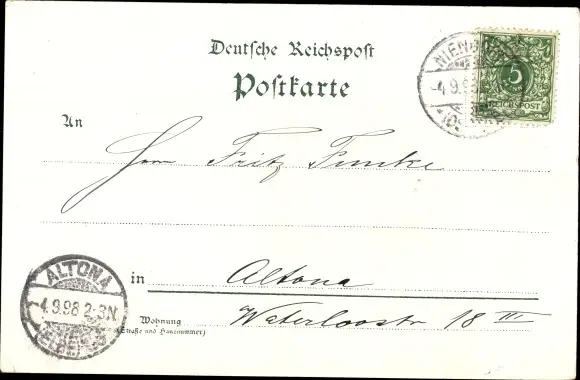 Deutsche Reichspost
Postkarte
5
REICHSPOST
4.9.98
An
Herrn Fritz Funcke
ALTONA
4.9.98 2-3N.
in Altona
Wohnung
(Straße und Hausnummer)
Waterloostr 18 III